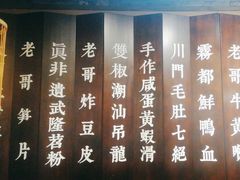 霧都鮮鴨血
川門毛肚七絕
手作咸蛋黃蝦滑
雙椒潮汕吊龍
老哥炸豆皮
眞非遺武隆苕粉
老哥笋片